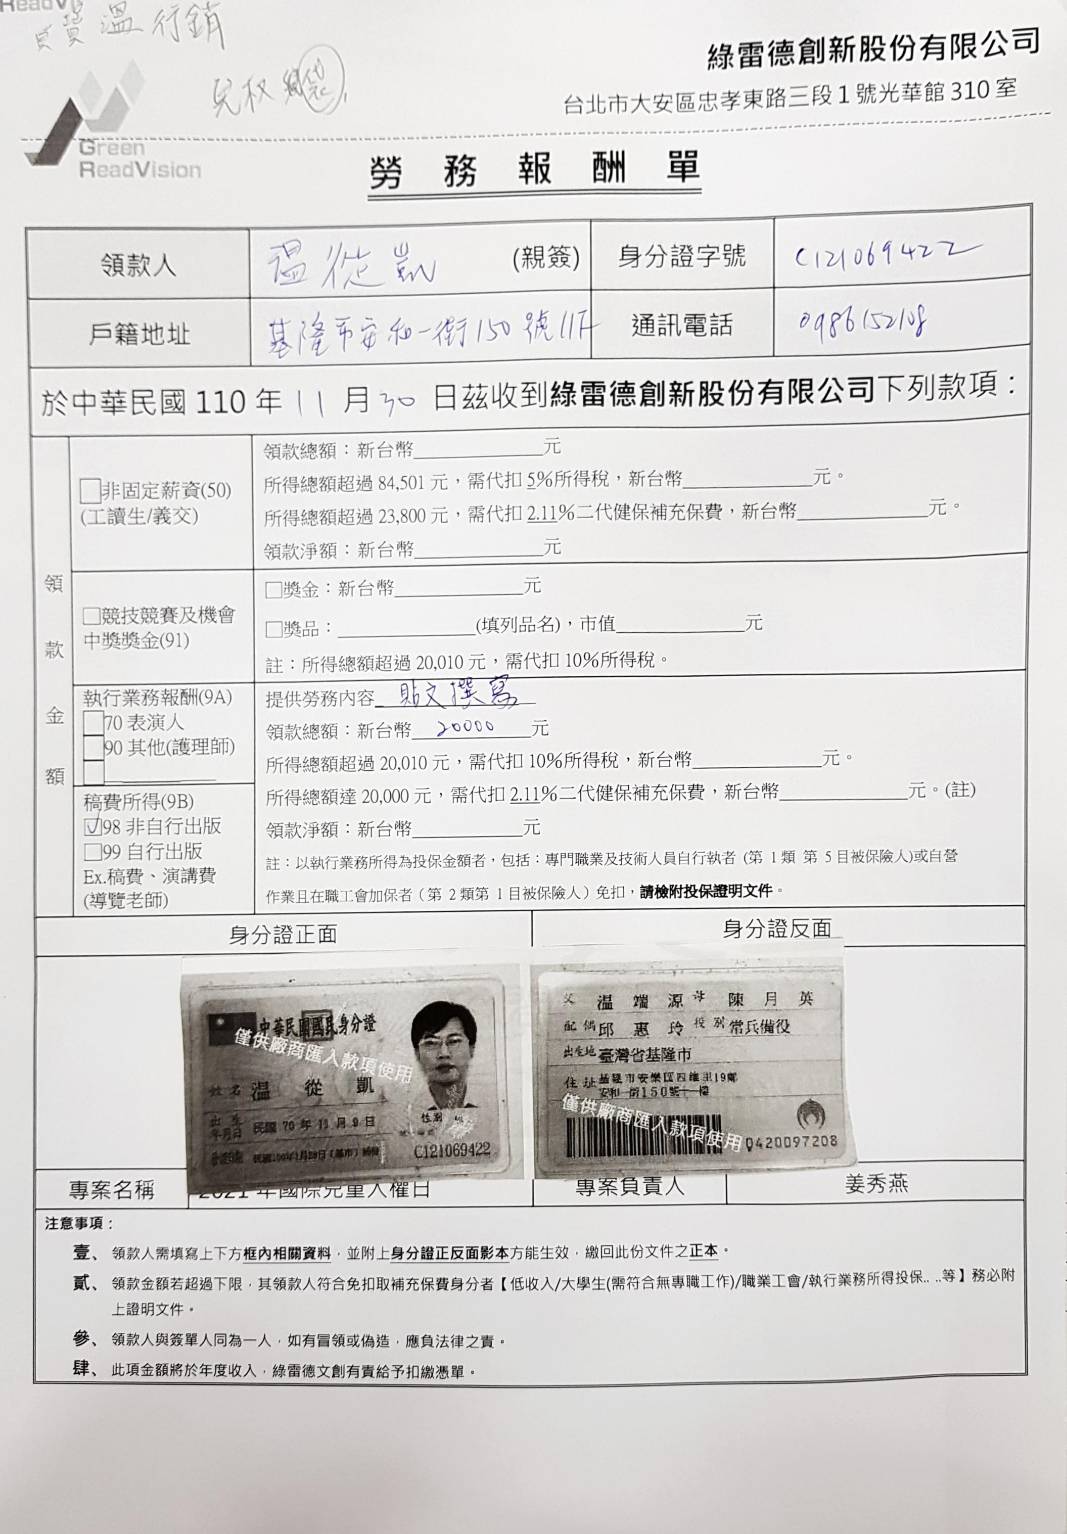 ReadVi
溫 行銷
綠雷德創新股份有限公司
台北市大安區忠孝東路三段1號光華館310室
Green
ReadVision
勞務報酬單
領款人 溫從凱 (親簽) 身分證字號 C121069422
戶籍地址 基隆市安和一街150號11F 通訊電話 0986152108
於中華民國 110 年 11 月 30 日茲收到綠雷德創新股份有限公司下列款項：
領款金額
□非固定薪資(50)
(工讀生/義交)
領款總額：新台幣____________元
所得總額超過 84,501 元，需代扣 5%所得稅，新台幣____________元。
所得總額超過 23,800 元，需代扣 2.11%二代健保補充保費，新台幣____________元。
領款淨額：新台幣____________元
□競技競賽及機會
中獎獎金(91)
□獎金：新台幣____________元
□獎品：____________(填列品名)，市值____________元
註：所得總額超過 20,010 元，需代扣 10%所得稅。
執行業務報酬(9A)
□70 表演人
□90 其他(護理師)
□__________
稿費所得(9B)
☑98 非自行出版
□99 自行出版
Ex.稿費、演講費
(導覽老師)
提供勞務內容 貼文撰寫
領款總額：新台幣 20000 元
所得總額超過 20,010 元，需代扣 10%所得稅，新台幣____________元。
所得總額達 20,000 元，需代扣 2.11%二代健保補充保費，新台幣____________元。(註)
領款淨額：新台幣__________元
註：以執行業務所得為投保金額者，包括：專門職業及技術人員自行執者 (第 1 類 第 5 目被保險人)或自營
作業且在職工會加保者（第 2 類第 1 目被保險人）免扣，請檢附投保證明文件。
身分證正面 身分證反面
中華民國國民身分證
僅供廠商匯入款項使用
姓名 溫從凱
出生年月日 民國 70 年 11 月 9 日
性別
C121069422
父 溫端源 母 陳月英
配偶 邱惠玲 役別 常兵備役
出生地 臺灣省基隆市
住址 基隆市安樂區四維里19鄰
安和一街150號十一樓
僅供廠商匯入款項使用
0420097208
專案名稱 2021 年國際兒童人權日 專案負責人 姜秀燕
注意事項：
壹、 領款人需填寫上下方框內相關資料，並附上身分證正反面影本方能生效，繳回此份文件之正本。
貳、 領款金額若超過下限，其領款人符合免扣取補充保費身分者【低收入/大學生(需符合無專職工作)/職業工會/執行業務所得投保.. ..等】務必附
上證明文件。
參、 領款人與簽單人同為一人，如有冒領或偽造，應負法律之責。
肆、 此項金額將於年度收入，綠雷德文創有責給予扣繳憑單。